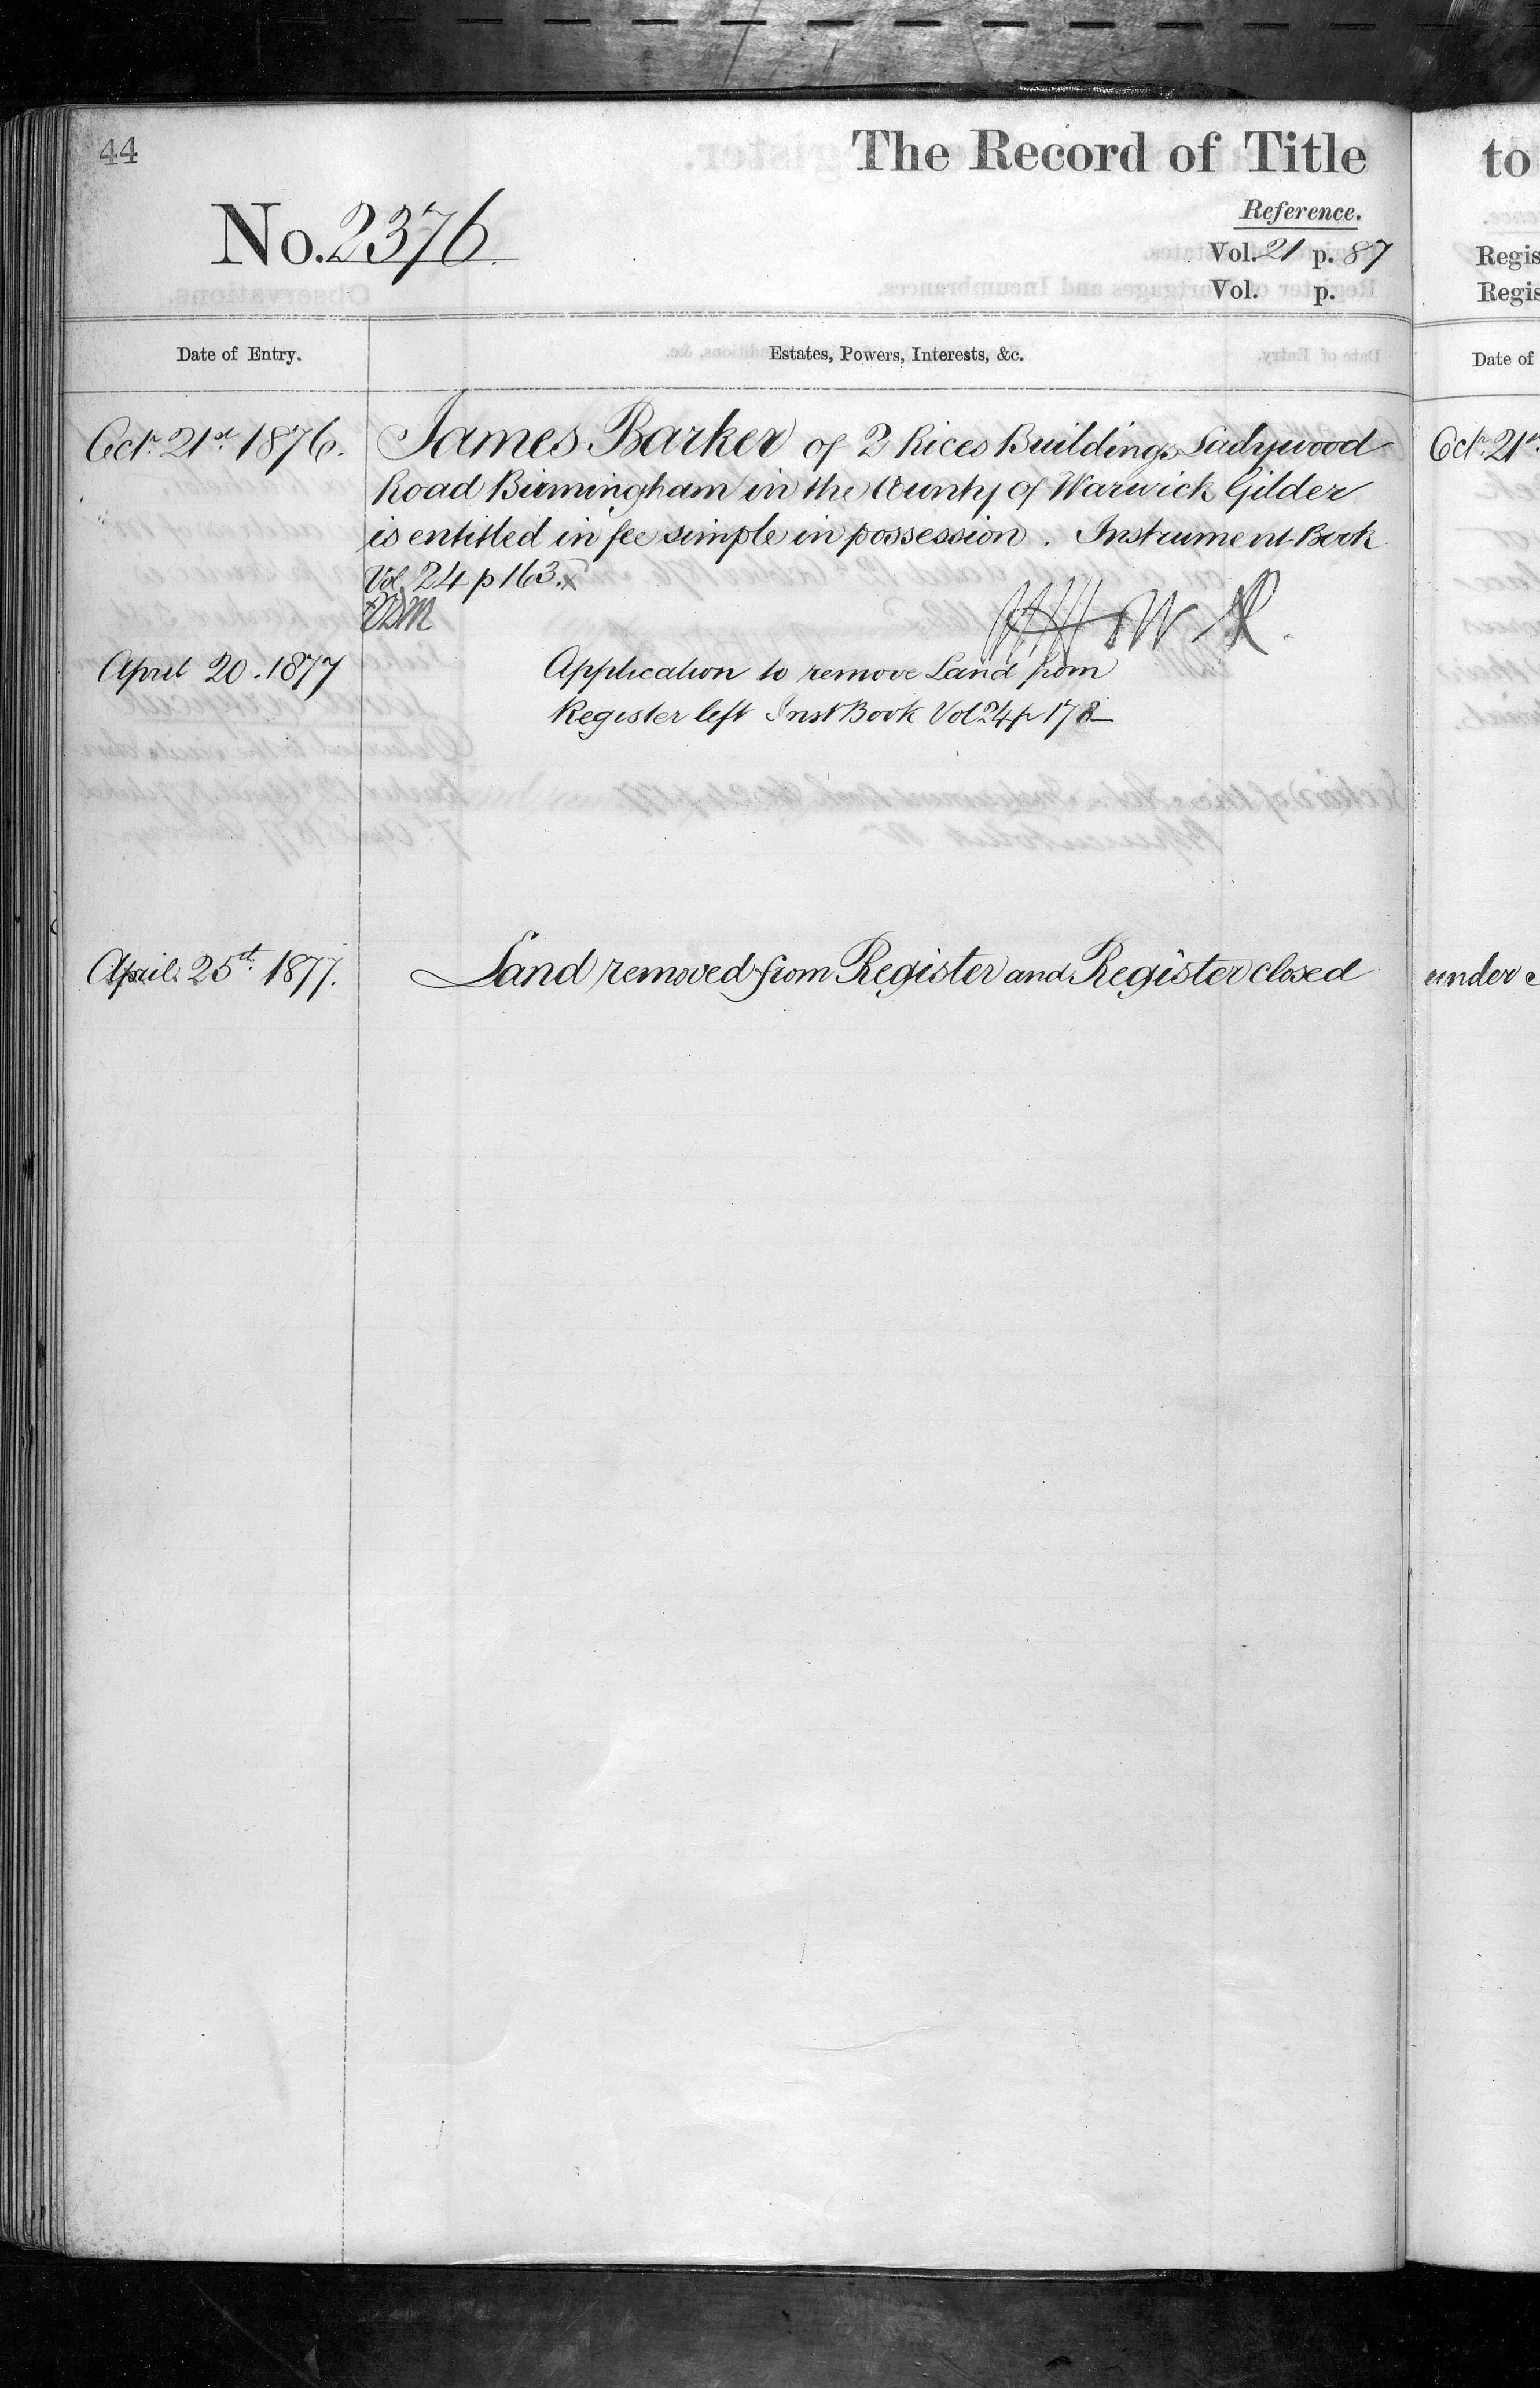 44
The Record of Title
No. 2376.
Reference.
Vol. 21 p. 87
Vol. p.
Date of Entry.
Estates, Powers, Interests, &c.
Octr. 21st 1876.
James Barker of 2 Rices Buildings Ladywood
Road Birmingham in the County of Warwick Gilder
is entitled in fee simple in possession. Instrument Book
Vol. 24 p 163. x
April 20. 1877
Application to remove Land from
Register left Inst Book Vol 24 p 178
April. 25th. 1877.
Land removed from Register and Register closed
to
Regis
Regis
Date of
Octr. 21st
under